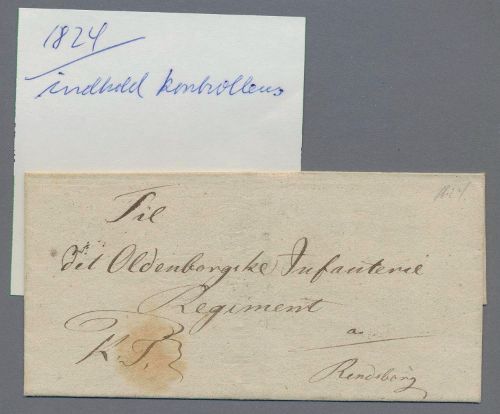 1824
indhold kontrolleres
1824
Til
det Oldenborgske Infanterie
Regiment
a
Rendsborg
K.T.